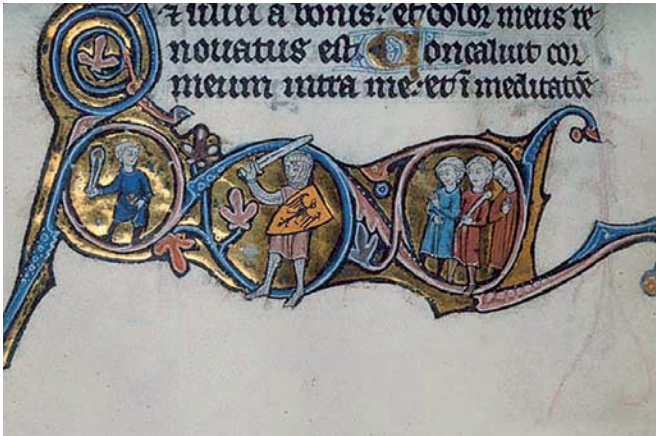 & silui a bonis: et dolor meus re
nouatus est Concaluit cor
meum intra me: et ī meditatōe